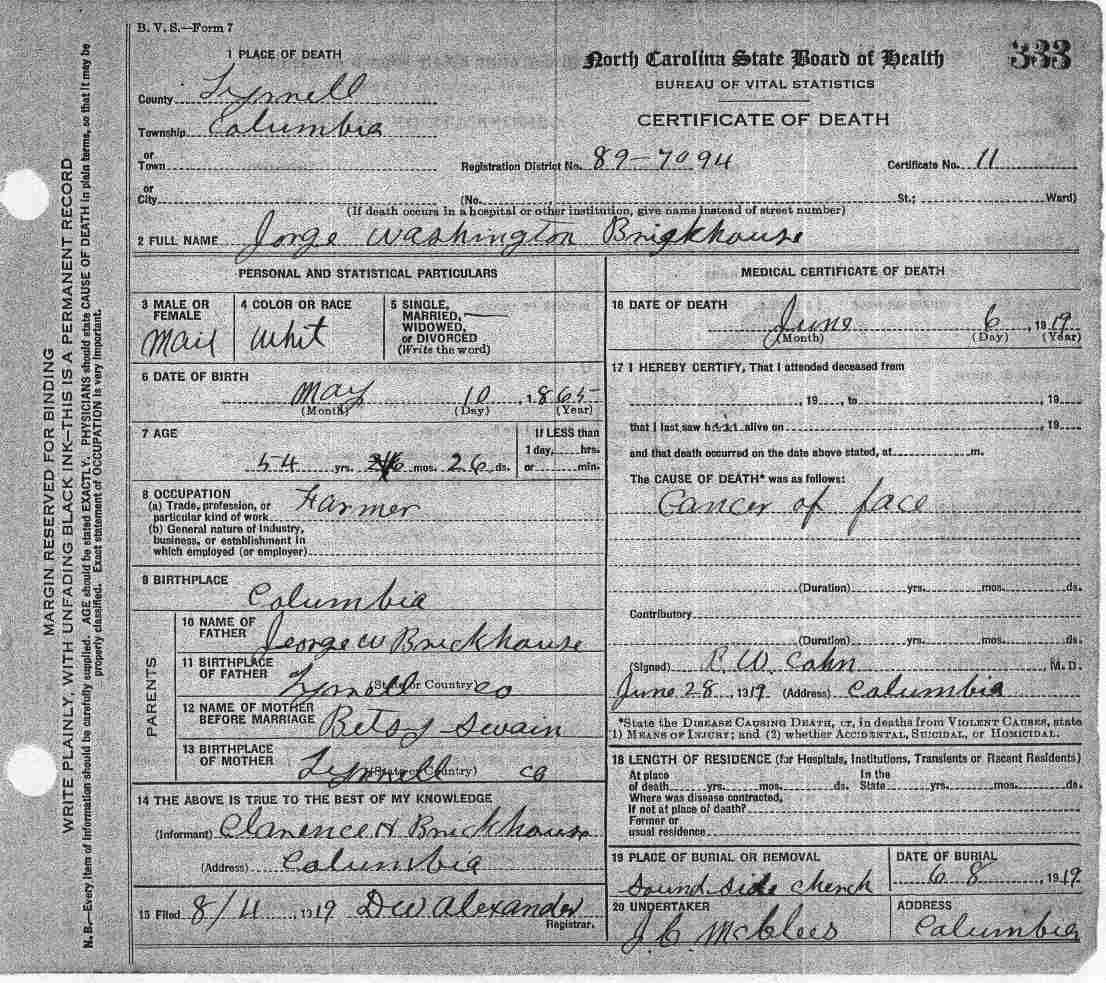 B. V. S.—Form 7
333
1 PLACE OF DEATH
County Tyrrell
Township Columbia
or
Town
or
City
North Carolina State Board of Health
BUREAU OF VITAL STATISTICS
CERTIFICATE OF DEATH
Registration District No. 89-7094 Certificate No. 11
(No. St.; Ward)
(If death occurs in a hospital or other institution, give name instead of street number)
2 FULL NAME Jorge Washington Brickhouse
PERSONAL AND STATISTICAL PARTICULARS
3 MALE OR FEMALE
Mail
4 COLOR OR RACE
Whit
5 SINGLE,
MARRIED,
WIDOWED,
or DIVORCED
(Write the word)
6 DATE OF BIRTH
May 10, 1865
(Month) (Day) (Year)
7 AGE
54 yrs. mos. 26 ds.
If LESS than
1 day, hrs.
or min.
8 OCCUPATION
(a) Trade, profession, or
particular kind of work Farmer
(b) General nature of Industry,
business, or establishment in
which employed (or employer)
9 BIRTHPLACE
Columbia
PARENTS
10 NAME OF
FATHER George W Brickhouse
11 BIRTHPLACE
OF FATHER
(State or Country) Tyrrell co
12 NAME OF MOTHER
BEFORE MARRIAGE Betsy Swain
13 BIRTHPLACE
OF MOTHER
(State or Country) Tyrrell co
14 THE ABOVE IS TRUE TO THE BEST OF MY KNOWLEDGE
(Informant) Clarence H Brickhouse
(Address) Columbia
15 Filed 8/4, 1919 D W Alexander
Registrar.
MEDICAL CERTIFICATE OF DEATH
16 DATE OF DEATH
June 6, 1919
(Month) (Day) (Year)
17 I HEREBY CERTIFY, That I attended deceased from
, 19 , to , 19
that I last saw h alive on , 19
and that death occurred on the date above stated, at m.
The CAUSE OF DEATH* was as follows:
Cancer of face
(Duration) yrs. mos. ds.
Contributory
(Duration) yrs. mos. ds.
(Signed) R. W. Cahn, M. D.
June 28, 1919 (Address) Columbia
*State the DISEASE CAUSING DEATH, or, in deaths from VIOLENT CAUSES, state
1) MEANS OF INJURY; and (2) whether ACCIDENTAL, SUICIDAL, or HOMICIDAL.
18 LENGTH OF RESIDENCE (for Hospitals, Institutions, Transients or Recent Residents)
At place of death yrs. mos. ds. In the State yrs. mos. ds.
Where was disease contracted,
If not at place of death?
Former or
usual residence
19 PLACE OF BURIAL OR REMOVAL
Sound Side Cherch
DATE OF BURIAL
6 8, 1919
20 UNDERTAKER
J. C. McClees
ADDRESS
Columbia
MARGIN RESERVED FOR BINDING
WRITE PLAINLY, WITH UNFADING BLACK INK—THIS IS A PERMANENT RECORD
N. B.—Every item of information should be carefully supplied. AGE should be stated EXACTLY. PHYSICIANS should state CAUSE OF DEATH in plain terms, so that it may be
properly classified. Exact statement of OCCUPATION is very important.